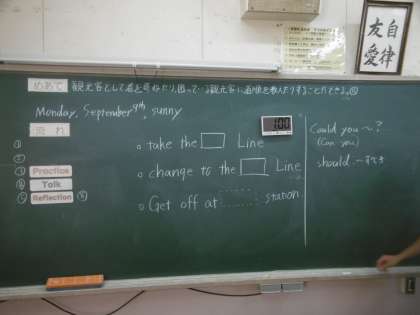 自律
友愛
めあて 観光客として道を尋ねたり、困っている観光客に道順を教えたりすることができる。
Monday, September 9th, sunny
流れ
1:00
①
②
③ Practice
④ Talk
⑤ Reflection
。take the Line
。change to the Line
。Get off at station
Could you ~?
(Can you)
should ~すべき